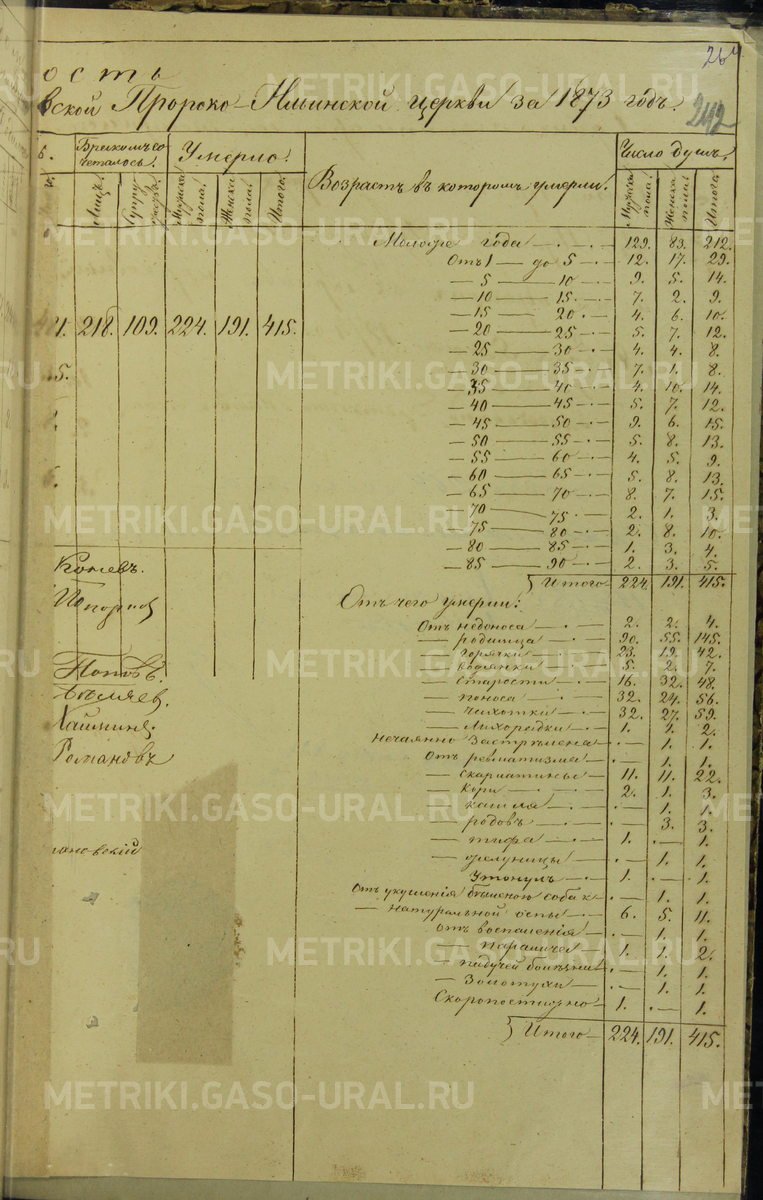 264
ость
вской Пророко-Ильинской церкви за 1873 годъ.
242
Бракомъ со
четалось.
Умерло.
Возрастъ въ которомъ умерли.
Число душъ.
Лицъ.
Супру
жествъ.
Мужеска
пола.
Женска
пола.
Итого.
Мужеска
пола.
Женска
пола.
Итого.
Моложе года 129. 83. 212.
Отъ 1 — до 5 — 12. 17. 29.
— 5 — 10 9. 5. 14.
— 10 — 15. — 7. 2. 9.
— 15 — 20 — 4. 6. 10.
218. 109. 224. 191. 415.
— 20 — 25 — 5. 7. 12.
— 25 — 30 — 4. 4. 8.
— 30 — 35 — 7. 1. 8.
— 35 — 40 — 4. 10. 14.
— 40 — 45 — 5. 7. 12.
— 45 — 50 — 9. 6. 15.
— 50 — 55 — 5. 8. 13.
— 55 — 60 — 4. 5. 9.
— 60 — 65 — 5. 8. 13.
— 65 — 70 — 8. 7. 15.
— 70 — 75 — 2. 1. 3.
— 75 — 80 — 2. 8. 10.
— 80 — 85 — 1. 3. 4.
— 85 — 90 — 2. 3. 5.
Итого 224. 191. 415.
Отъ чего умерли:
Отъ недоноса — 2. 2. 4.
— родимца — 90. 55. 145.
— горячки — 23. 19. 42.
— водянки — 5. 2. 7.
— старости — 16. 32. 48.
— поноса — 32. 24. 56.
— чихотки — 32. 27. 59.
— Лихорадки — 1. 1. 2.
Нечаянно застрѣлена — 1. 1.
Отъ ревматизма — 1. 1.
— скарлатины — 11. 11. 22.
— Кори — 2. 1. 3.
— кашля — 1. 1.
— родовъ — 3. 3.
— тифа — 1. — 1.
— желуницы — 1. 1.
Утонулъ — 1. — 1.
Отъ укушенія бѣшеною собак — 1. 1.
— натуральной оспы — 6. 5. 11.
Отъ воспаленія — 1. 1.
— паралича — 1. 1. 2.
— падучей болѣзни — 1. 1.
— Золотухи — 1. 1.
Скоропостижно — 1. — 1.
Итого — 224. 191. 415.
Поповъ.
Бѣляев.
Романовъ
ановскій
METRIKI.GASO-URAL.RU